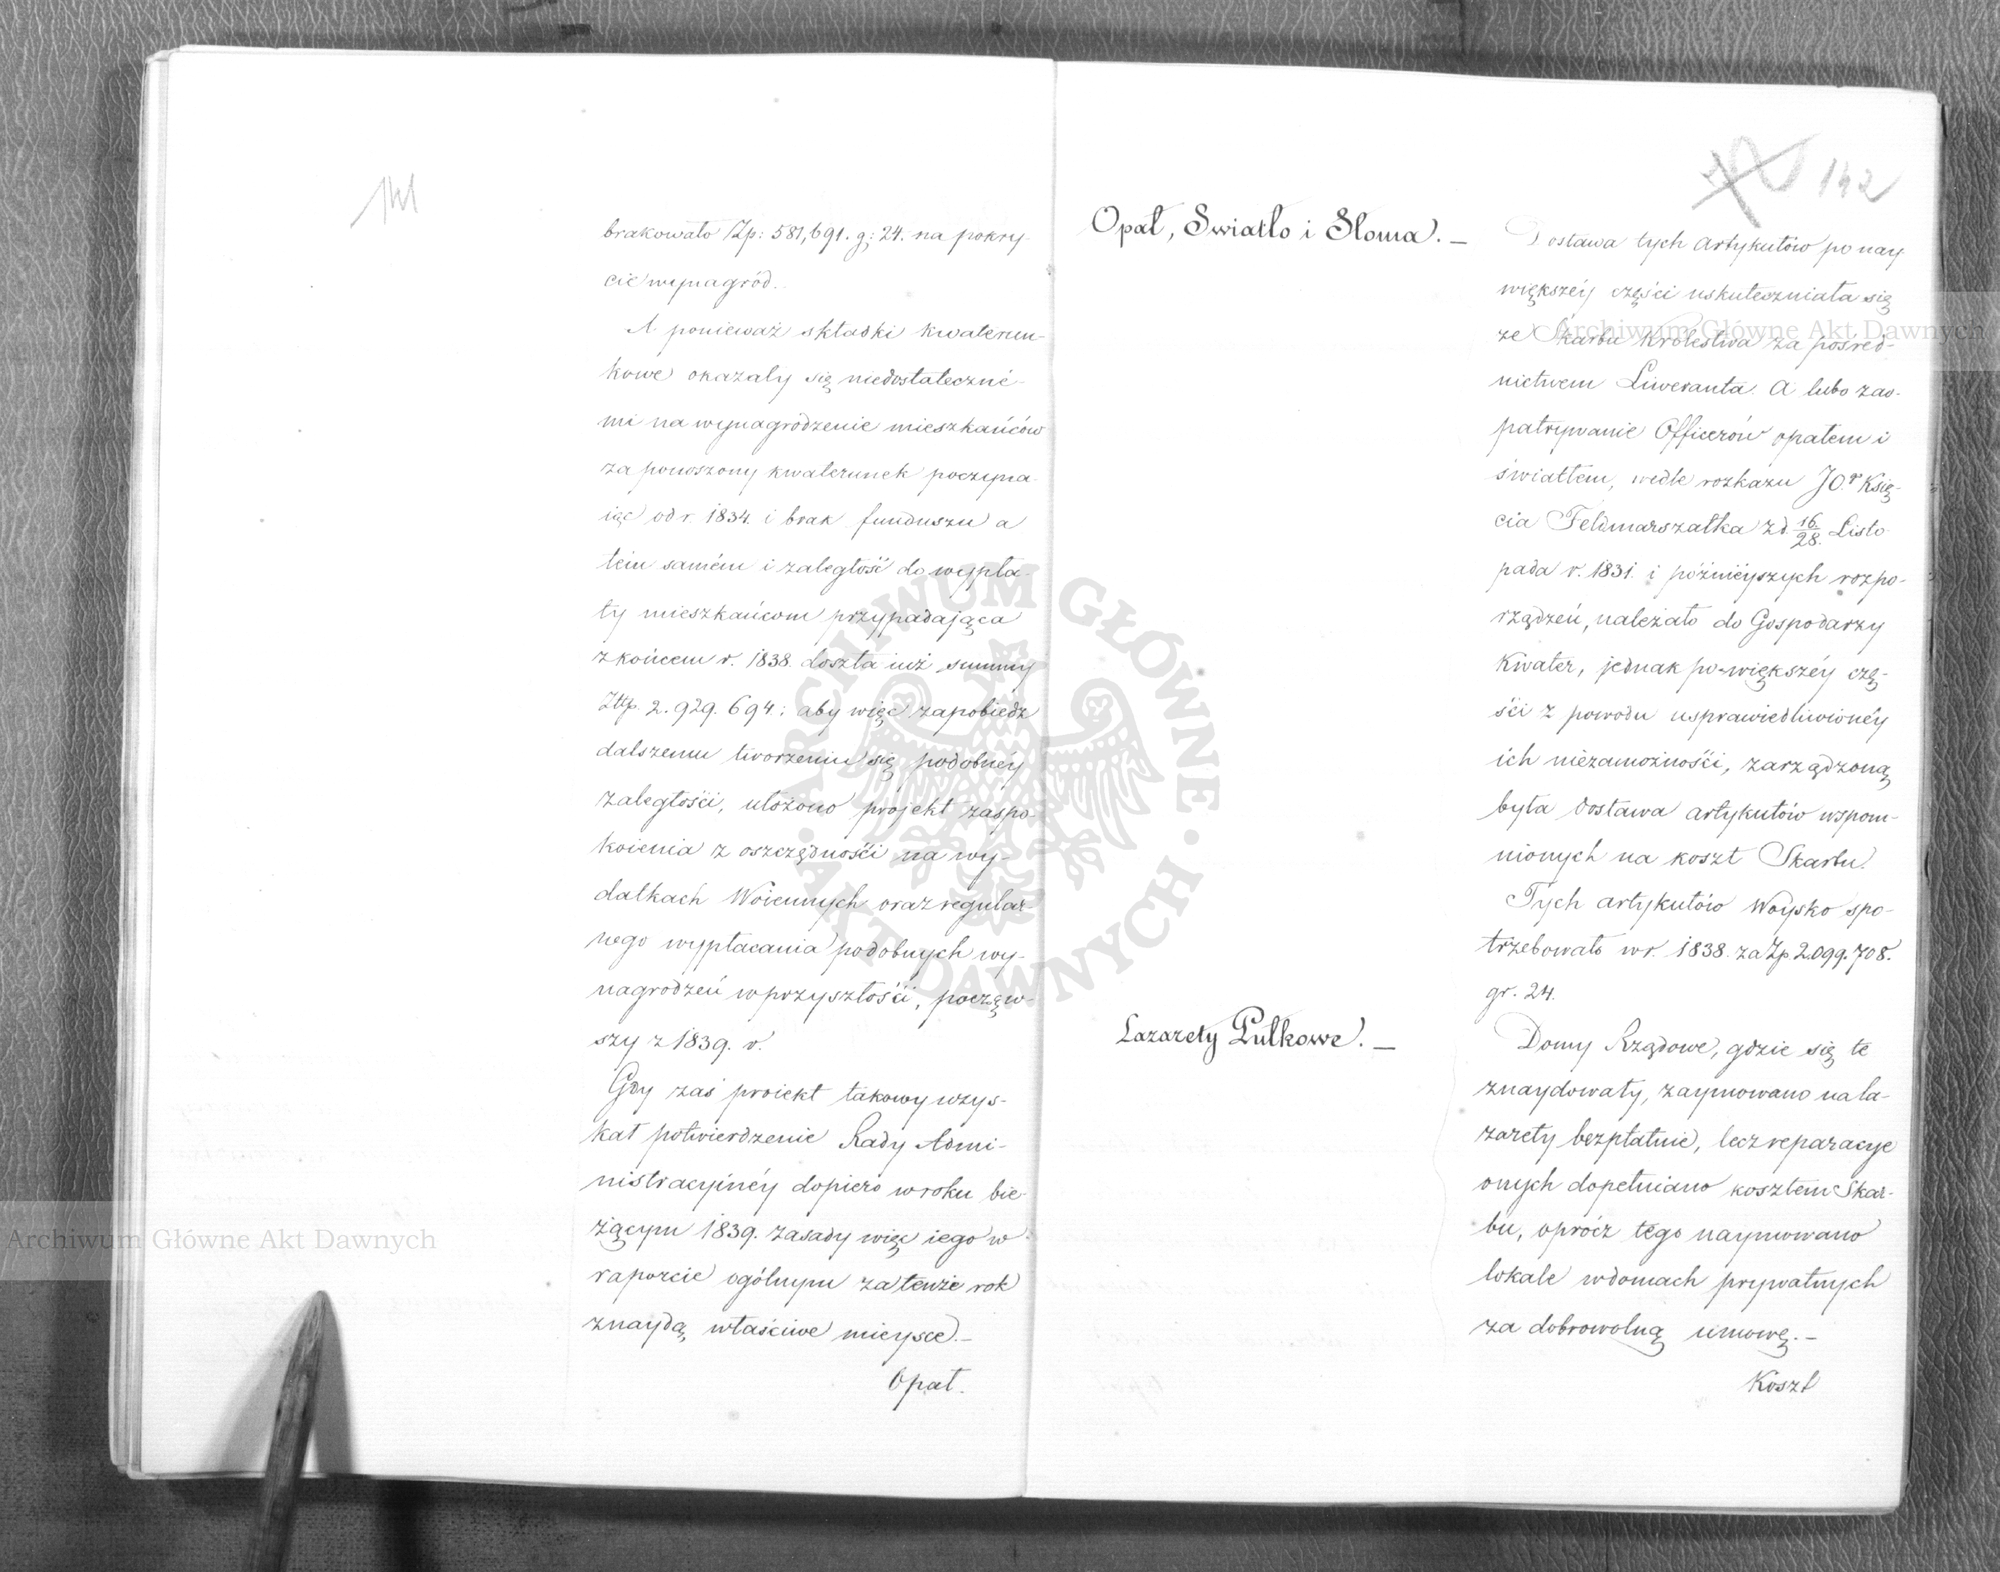 141
brakowało Zp: 581,691. g: 24. na pokry-
cie wynagród.
A ponieważ składki kwaterun-
kowe okazały się niedostateczné-
mi na wynagrodzenie mieszkańców
za ponoszony kwaterunek poczyna-
iąc od r. 1834. i brak funduszu a
tém samém i zaległość do wypła-
ty mieszkańcom przypadająca
z końcem r. 1838. doszła iuż summy
Złp. 2.929.694: aby więc zapobiedz
dalszemu tworzeniu się podobnéy
zaległości, ułożono projekt zaspo-
koienia z oszczędności na wy-
datkach Woiennych oraz regular-
nego wypłacania podobnych wy-
nagrodzeń w przyszłości, począw-
szy z 1839. r.
Gdy zaś proiekt takowy uzys-
kał potwierdzenie Rady Admi-
nistracyinéy dopiero w roku bie-
żącym 1839. zasady więc iego w
raporcie ogólnym za tenże rok
znaydą właściwe mieysce.—
Opał.
142
Opał, Światło i Słoma.—
Dostawa tych artykułów po nay-
większéy części uskuteczniała się
ze Skarbu Królestwa za pośred-
nictwem Liweranta. A lubo zao-
patrywanie Officerów opałem i
światłem, wedle rozkazu JO.º Księ-
cia Feldmarszałka z d. 16/28. Listo-
pada r. 1831. i późniéyszych rozpo-
rządzeń, należało do Gospodarzy
Kwater, jednak po większéy czę-
ści z powodu usprawiedliwionéy
ich niezamożności, zarządzoną
była dostawa artykułów wspom-
nionych na koszt Skarbu.
Tych artykułów Woysko spo-
trzebowało w r. 1838. za Zp 2.099.708.
gr. 24.
Lazarety Pułkowe.—
Domy Rządowe, gdzie się te
znaydowały, zaymowano na la-
zarety bezpłatnie, lecz reparacye
onych dopełniano kosztem Skar-
bu, oprócz tego naymowano
lokale w domach prywatnych
za dobrowolną umową.—
Koszt
Archiwum Główne Akt Dawnych
Archiwum Główne Akt Dawnych
ARCHIWUM GŁÓWNE · AKT DAWNYCH ·